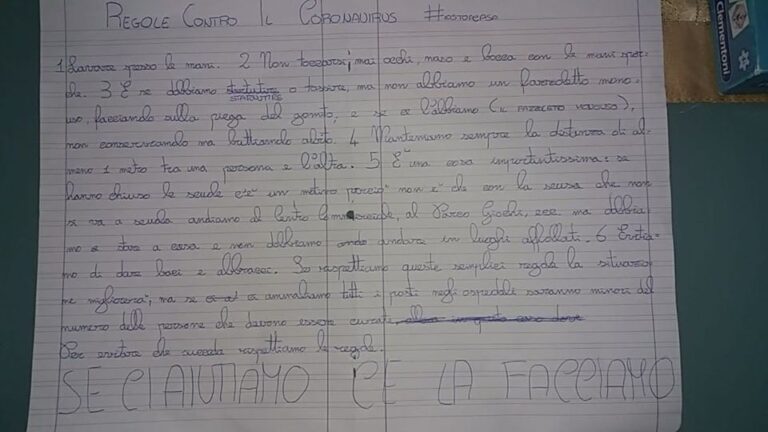 REGOLE CONTRO IL CORONAVIRUS #iostoacasa
1 Lavare spesso le mani. 2 Non toccarsi mai occhi, naso e bocca con le mani spor-
che. 3 E se dobbiamo starnutire o tossire, ma non abbiamo un fazzoletto mono-
uso, facciamolo sulla piega del gomito, e se ce l'abbiamo (IL FAZZOLETTO MONOUSO),
non conserviamolo ma buttiamolo subito. 4 Manteniamo sempre la distanza di al-
meno 1 metro tra una persona e l'altra. 5 E' una cosa importantissima: se
hanno chiuso le scuole c'è un motivo perciò non è che con la scusa che non
si va a scuola andiamo al Centro Commerciale, al Parco Giochi, ecc. ma dobbia-
mo stare a casa e non dobbiamo andare in luoghi affollati. 6 Evitia-
mo di dare baci e abbracci. Se rispettiamo queste semplici regole la situazio-
ne migliorerà, ma se ci ammaliamo tutti i posti negli ospedali saranno minori del
numero delle persone che devono essere curate,
Per evitare che succeda rispettiamo le regole.
SE CI AIUTIAMO CE LA FACCIAMO
Clementoni